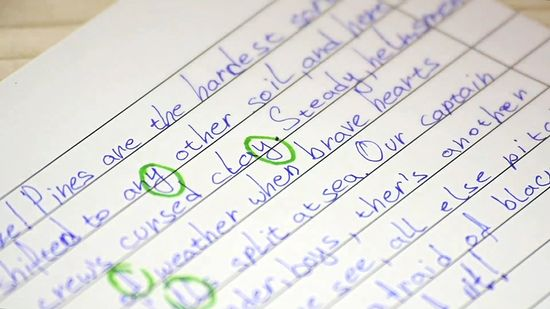 Pines are the hardest sort
shifted to any other soil, and here
crew's cursed clay. Steady, helmsmen
weather when brave hearts
split at sea. Our captain
boys, ther's another
see, all else pitc
afraid of blac
it!